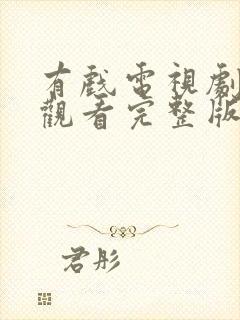 有戲電視劇
觀看完整版
君彤